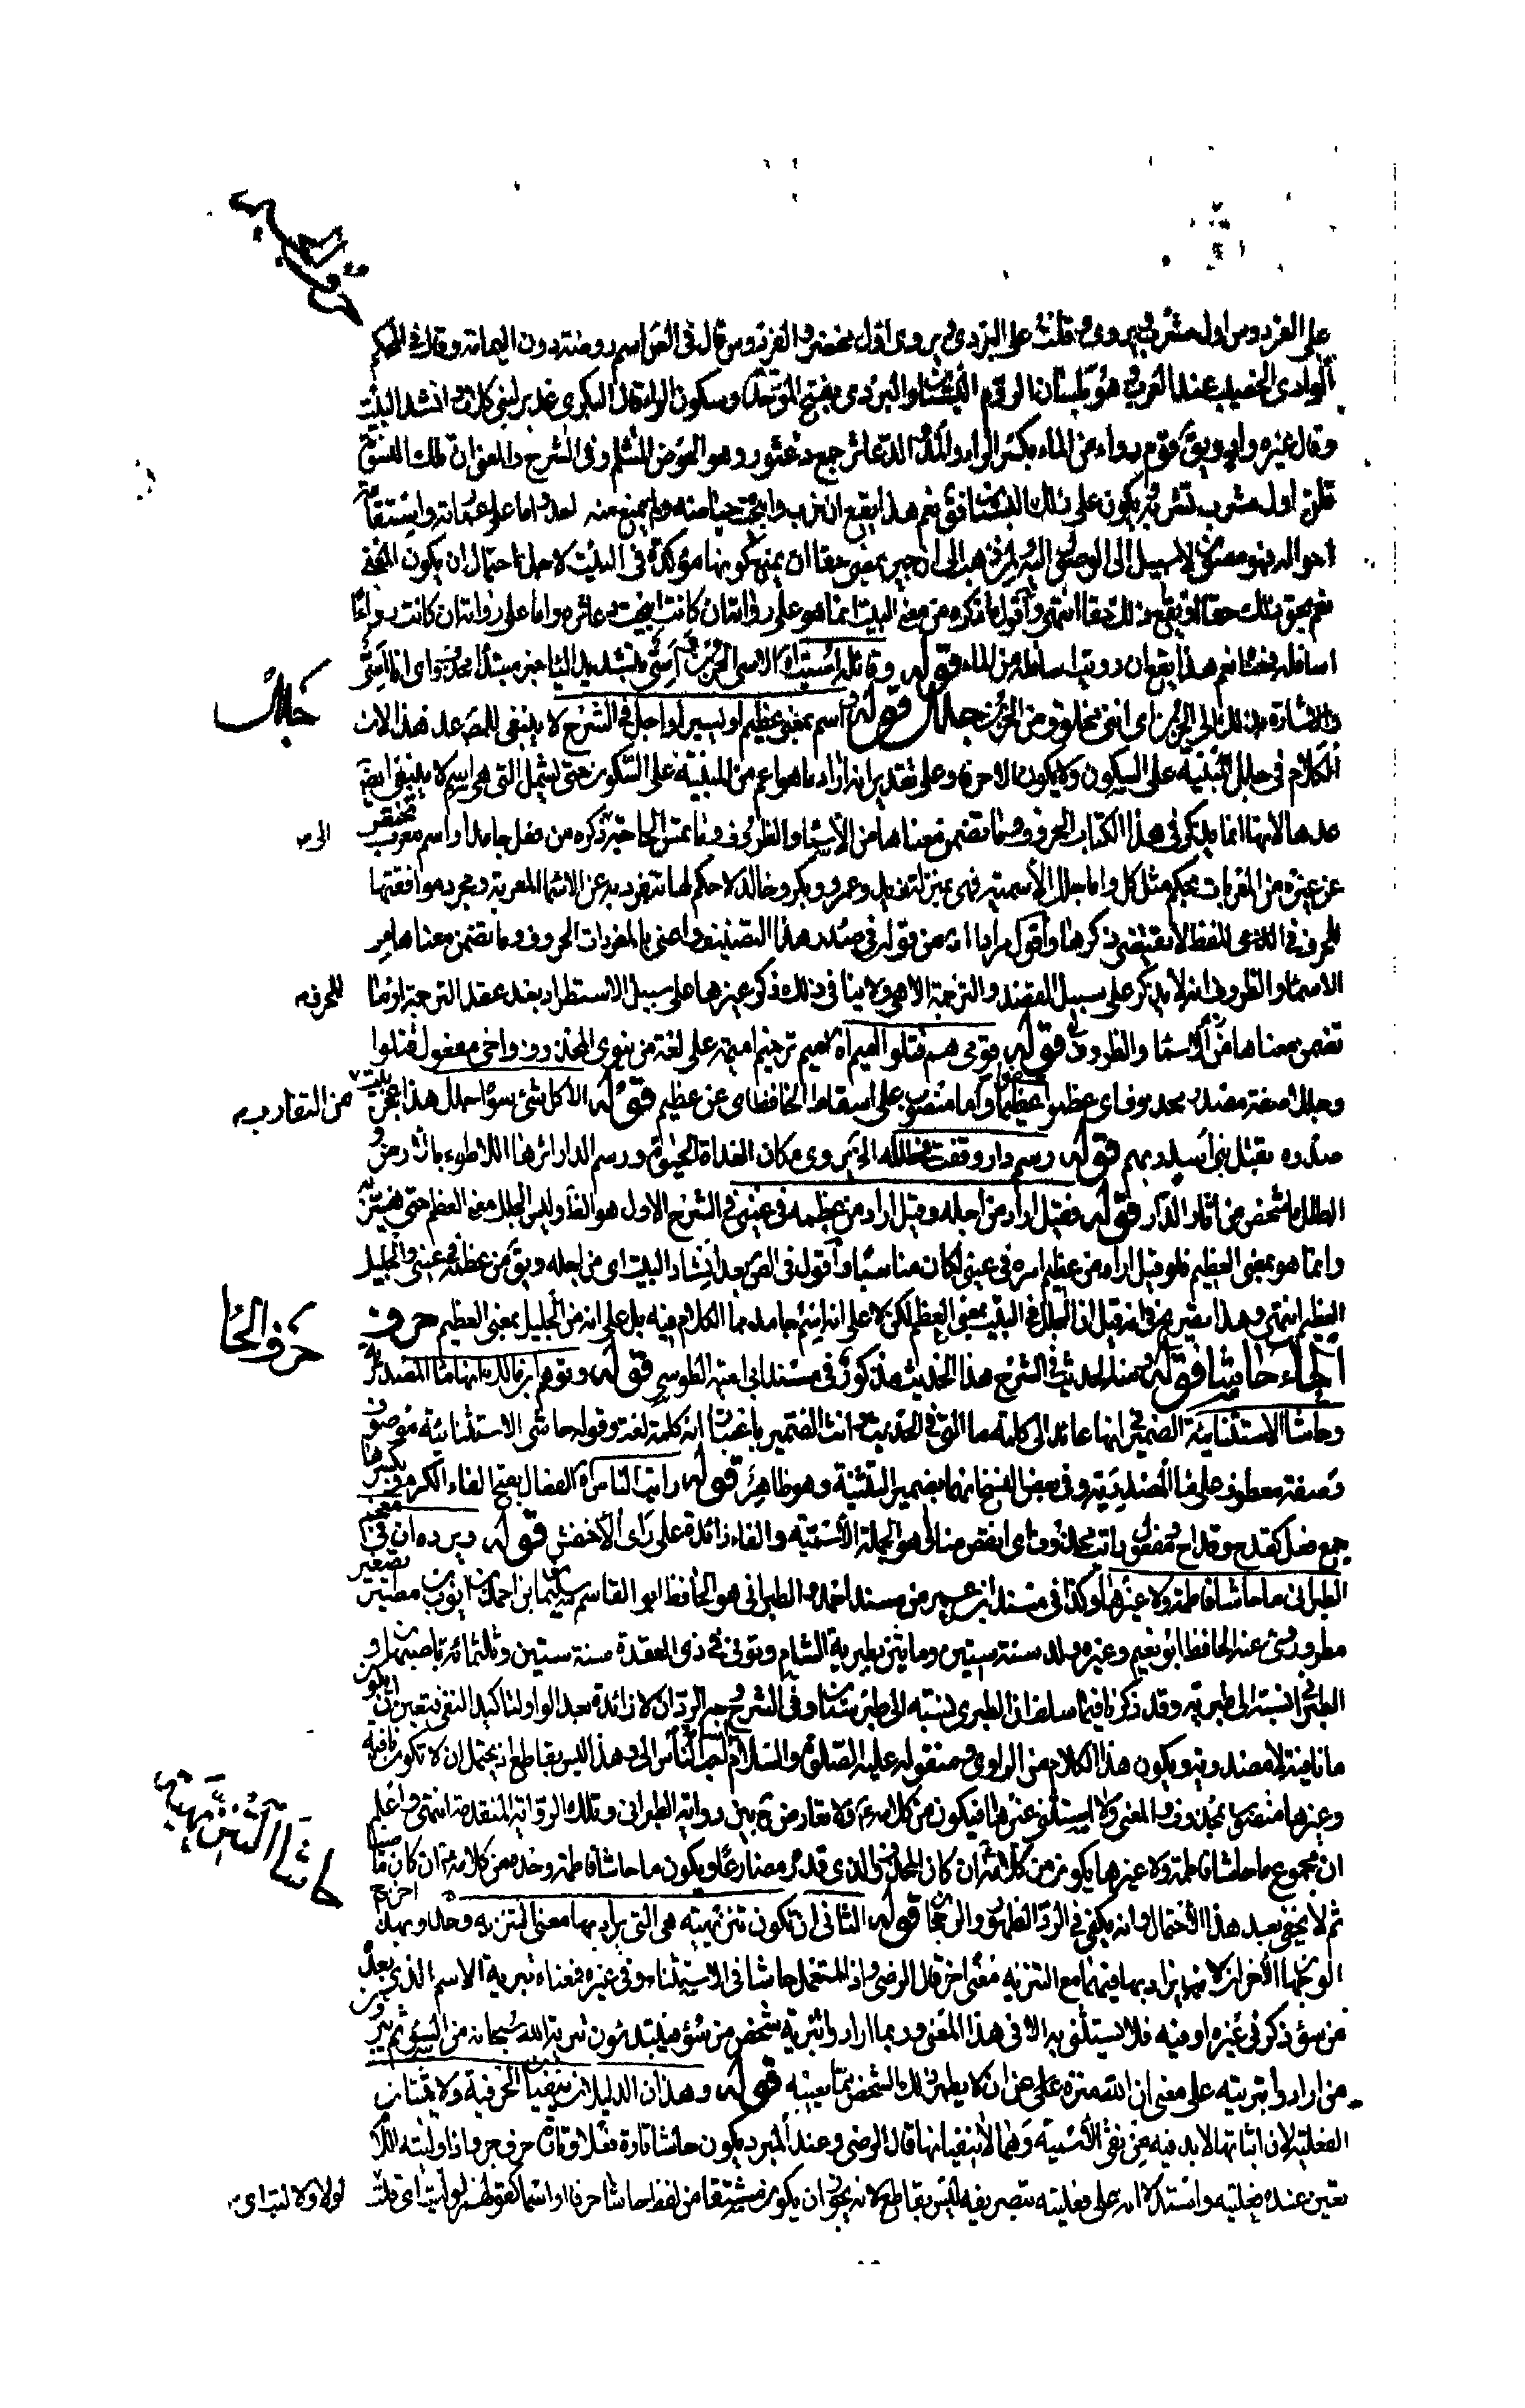 على الفردوس اول مشرب ويروى وقلت على البردى ويروى اول محضر والفردوس قال في الص اسم روضة دون اليمامة وقال في المحكم
الوادى الخصيب عند العرب هو بلسان الروم البستان والبردى بفتح الموحدة وسكون الراء قال البكرى غدير لبنى كلاب وانشد البيت
وقال غيره واد ويق قوم رواء من الماء بكسر الراء والمد الدعاثر جمع دعثور وهو الحوض المتثلم وفي الشرح والمعنى ان تلك النسوة
قلن اول مشرب نشربه يكون على ذلك البستان فق نعم هذا يقع ان خرب وابيحت حياضه ولم يمنع منه احد واما على عمارته واستقامة
احواله فهو مصون لا سبيل الى الوصول اليه ان جير بمعنى حقا ان يمنع كونها مؤكدة في البيت لاجل احتمال ان يكون المعنى
نعم يحق ذلك حقا او يقع ذلك حقا انتهى واقول ما ذكره من معنى البيت انما هو على رواية ان كانت ابيحت دعاثره واما على رواية ان كانت رواء
اسافله نعم هذا يقع ان رويت اسافله من الماء قوله وقائلة اسيت الاسى الحزن اسى بتشديد الياء خبر مبتدا محذوف اى انا اسى
والاشارة بذلك الى الحزن اى اننى مخلوق من الحزن جلل قوله واسم بمعنى عظيم او يسير او اجل في الشرح لا ينبغى للمص عد هذا لان
الكلام في جلل المبنية على السكون ولا يكون الا حرفا وعلى تقدير انه اراد ما هو اعم من المبنية على السكون حتى يشمل التى هى اسم لا ينبغى ايضا
عدها لانه انما يذكر في هذا الكتاب الحروف وما تضمن معناها من الاسماء والظروف وما تمس الحاجة الى ذكره من فعل جامد او اسم معرب يختص
عن غيره من المعربات بحكم مثل كل واما جلل الاسمية فهى بمنزلة زيد وعمرو وبكر وخالد لا حكم لها تتفرد به عن الاسماء المعربة ومجرد موافقتها
للحرف في اللفظ لا يقتضى ذكرها واقول مراده من قوله في صدر هذا التصنيف واعنى بالمفردات الحروف وما تضمن معناها من
الاسماء والظروف انه لا يذكر على سبيل القصد والترجمة الا هى ولا ينافى ذلك ذكر غيرها على سبيل الاستطراد بعد عقد الترجمة للحرف او لما
تضمن معناها من الاسماء والظروف قوله قومى هم قتلوا اميم اه اميم ترخيم اميمة على لغة من ينوى المحذوف واخى مفعول قتلوا
وجللا صفة مصدر محذوف اى عفوا عظيما واما منصوب على اسقاط الخافض اى عن عظيم قوله الا كل شىء سواه جلل هذا عجز بيت من المتقارب
صدره بقتل بنى اسد ربهم قوله رسم دار وقفت في طلله الخ يروى مكان الغداة الحيوة ورسم الدار اثرها اللاطىء بالارض و
الطلل ما شخص من اثار الدار قوله فقيل اراد من اجله وقيل اراد من عظمه في عينى في الشرح الاول هو الفا وليس الجلل بمعنى العظم حتى يفسر به
وانما هو بمعنى العظيم فلو قيل اراد من عظيم امره في عينى لكان مناسبا واقول في الص بعد انشاد البيت اى من اجله ويق من عظمه في عينى والجليل
العظيم انتهى وهذا تصريح من قبل ان الجلل في البيت بمعنى العظم لكن لا على انه اسم جامد مما الكلام فيه بل على انه من الجليل بمعنى العظيم حرف
الحاء حاشا قوله ومنه الحديث في الشرح هذا الحديث مذكور في مسند ابى امية الطوسى قوله وتوهم ابن مالك انها ما المصدرية
وحاشا الاستثنائية الضمير في انها عائد الى كلمة ما التى في الحديث وانث الضمير باعتبار انه كلمة لغة وقوله حاشى الاستثنائية موصوف
وصفة معطوف على ما المصدرية وفي بعض النسخ انهما بضمير التثنية وهو ظاهر قوله رايت الناس اه الفعال بفتح الفاء الكرم وبكسرها
جمع فعل كقدح وقداح ومفعول رايت محذوف اى انقص منا او هو الجملة الاسمية والفاء زائدة على راى الاخفش قوله ويرده ان في معجم
الطبرانى ما حاشا فاطمة ولا غيرها وكذا في مسند ابن عمر من مسند احمد والطبرانى هو الحافظ ابو القاسم سليمان بن احمد بن ايوب مصغير تصغير
مطر روى عنه الحافظ ابو نعيم وغيره ولد سنة ستين ومائتين بطبرية الشام وتوفى في ذى القعدة سنة ستين وثلثمائة باصبهان و
الطبرانى نسبة الى طبرية وقد ذكرنا فيما سلف ان الطبرى نسبة الى طبرستان وفي الشرح وجه الرد ان لا زائدة بعد الواو لتاكيد النفى فتعين ان يكون
ما نافية لا مصدرية ويكون هذا الكلام من الراوى ومنقوله عليه الصلوة والسلام اسامة احب الناس الى وهذا ليس بقاطع اذ يحتمل ان لا تكون نافية
وغيرها منصوب بمحذوف والمعنى ولا استثنى غيرها فيكون من كلامه ولا تعارض ح بين رواية الطبرانى وتلك الرواية المتقدمة انتهى واعلم
ان مجموع ما حاشا فاطمة ولا غيرها يكون من كلامه ان كان المحذوف الذى قدر مضارعا ويكون ما حاشا فاطمة وحده من كلامه ان كان ماضيا
ثم لا يخفى بعد هذا الاحتمال وانه يكفى في الرد الظهور والرجحان قوله الثانى ان تكون تنزيهية هى التى يراد بها معنى التنزيه وحده وبهذا اخرج
الوجهان الاخران لانها يراد بها فيهما مع التنزيه معنى اخر قال الرضى واذا استعمل حاشا في الاستثناء وفي غيره فمعناه تبرية الاسم الذى بعده
من سوء ذكر في غيره او فيه فلا يستثنى به الا في هذا المعنى وربما ارادوا تبرية شخص من سوء فيبتدئون تبرية الله سبحانه من السوء ثم يبرئون
من ارادوا تبريته على معنى ان الله منزه على عن ان لا يطهر ذلك الشخص مما يعيبه قوله وهذان الدليلان ينفيان الحرفية ولا يثبتان
الفعلية لان اثباتها لا بد فيه من نفى الاسمية وهما لا ينفيانها قال الرضى وعند المبرد يكون حاشا تارة فعلا وتارة حرف جر واذا وليته اللام
تعين عنده فعليته واستدلاله على فعليته بتصريفه ليس بقاطع لانه يجوز ان يكون مشتقا من لفظ حاشا حرفا او اسما كقولهم لوليت اى قلت لولا ولا ليت اى
جلل
حرف الحا
حاشا التنزيهية